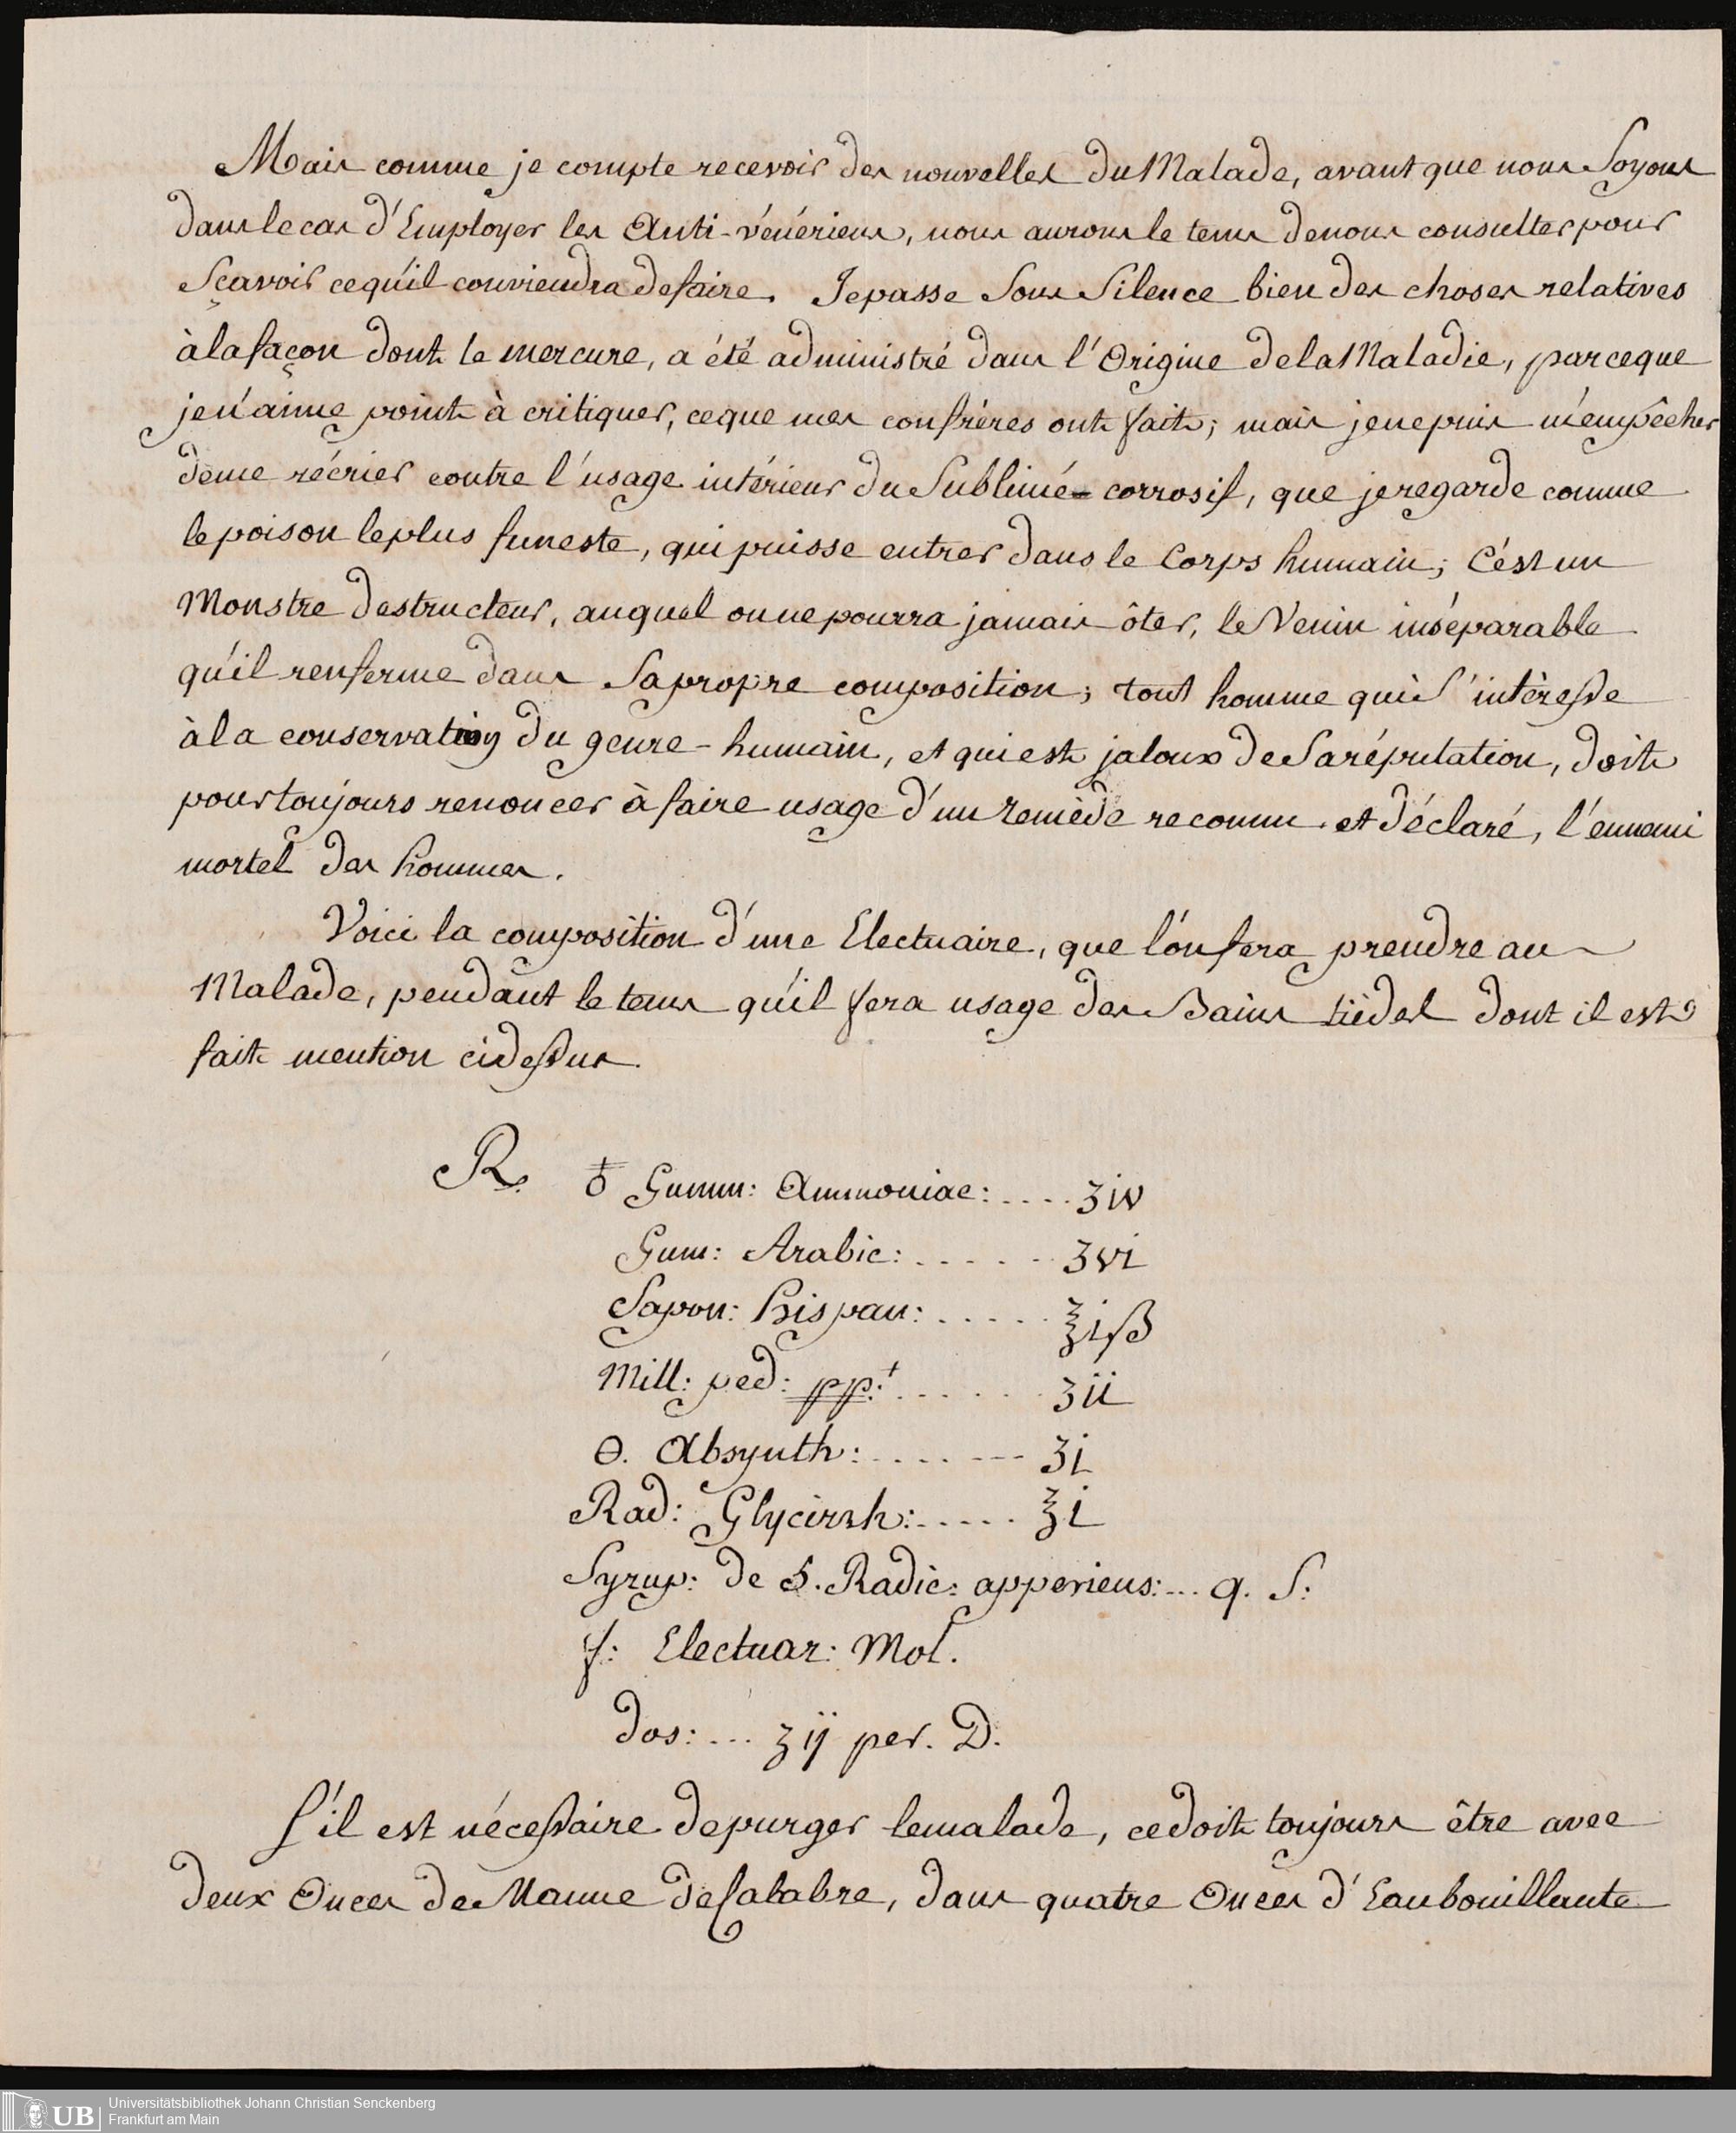 Mais comme je compte recevoir des nouvelles du Malade, avant que nous Soyons
dans le cas d'Employer les Anti-vénériens, nous aurons le tems de nous consulter pour
Sçavoir ce qu'il conviendra de faire. Je passe Sous Silence bien des choses relatives
à la façon dont le mercure, a été administré dans l'Origine de la Maladie, parceque
je n'aime point à critiquer, ce que mes confréres ont fait; mais je ne puis m'empêcher
de me récrier contre l'usage intérieur du Sublimé-corrosif, que je regarde comme
le poison le plus funeste, qui puisse entrer dans le Corps humain; C'est un
Monstre destructeur, auquel on ne pourra jamais ôter, le Venin inséparable
qu'il renferme dans Sa propre composition; tout homme qui S'intèresse
à la conservation du genre-humain, et qui est jaloux de Sa réputation, doit
pour toujours renoncer à faire usage d'un remède reconnu et déclaré, l'ennemi
mortel des hommes.
Voici la composition d'une Electuaire, que l'on fera prendre au
Malade, pendant le tems qu'il fera usage des Bains tièdes dont il est
fait mention cidessus.
R. ♁ Gumm: Ammoniac: .... ʒiv
Gum: Arabic: ...... ʒvi
Sapon: hispan: ..... ℥iß
Mill: ped: pp:t ...... ʒii
ɵ. Absynth: ....... ʒi
Rad: Glycirrh: ..... ℥i
Syrup: de 5. Radic: apperiens: ... q. S:
f: Electuar: Mol.
dos: ... ʒij per. D.
S'il est nécessaire de purger le malade, ce doit toujours être avec
deux Onces de Manne de Calabre, dans quatre Onces d'Eau bouillante
UB
Universitätsbibliothek Johann Christian Senckenberg
Frankfurt am Main